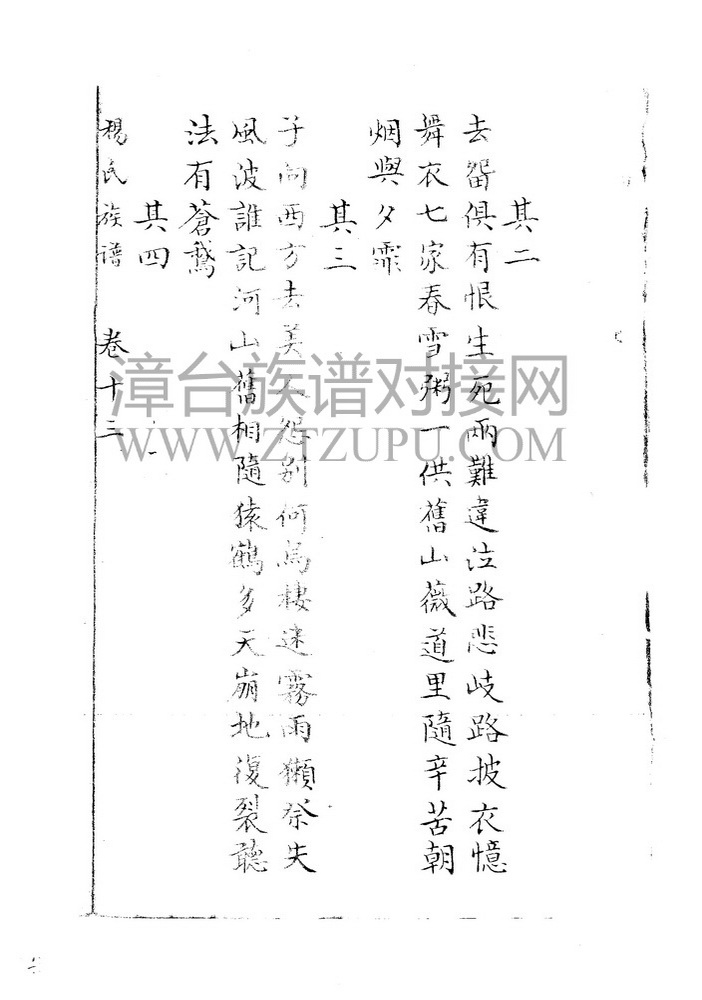 其二
去畱俱有恨生死兩難違泣路悲岐路披衣憶
舞衣七家春雪粥一供舊山薇道里隨辛苦朝
烟與夕霏
其三
子向西方去美人怨别何烏棲迷霧雨獺祭失
風波誰記河山舊相隨猿鶴多天崩地復裂聽
法有蒼鵞
其四
楊氏族谱 卷十三
漳台族谱对接网
WWW.ZTZUPU.COM